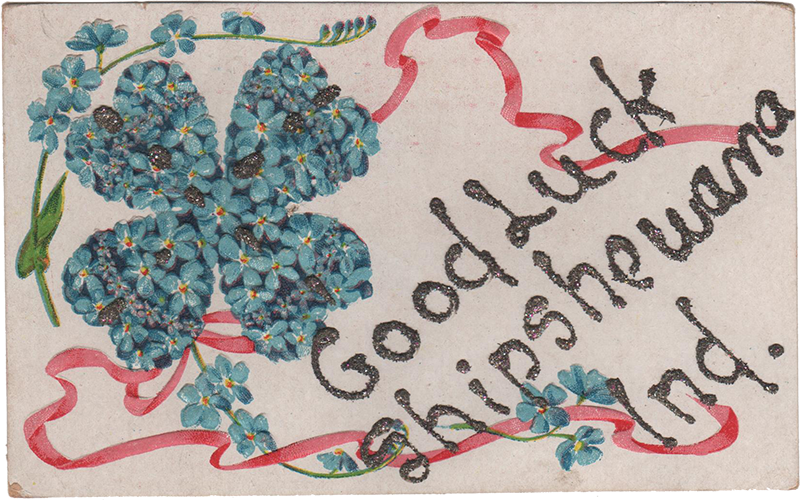 Good Luck
Shipshewana
Ind.